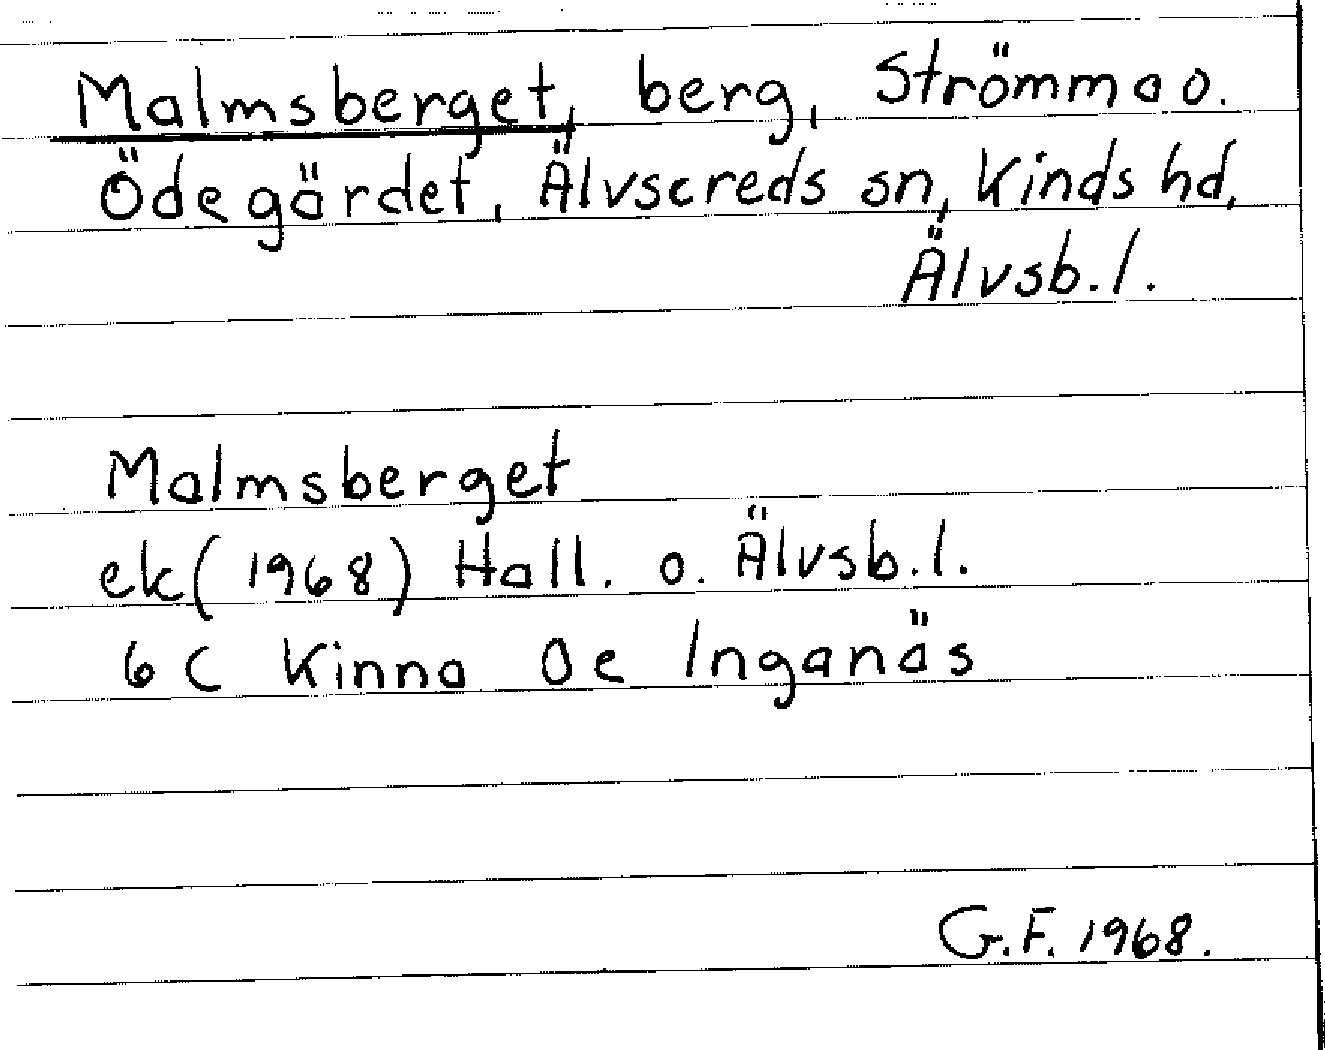 Malmsberget, berg, Strömma o.
Ödegärdet, Älvsereds sn, Kinds hd,
Älvsb.l.
Malmsberget
ek(1968) Hall. o. Älvsb.l.
6C Kinna 0e Inganäs
G.F. 1968.